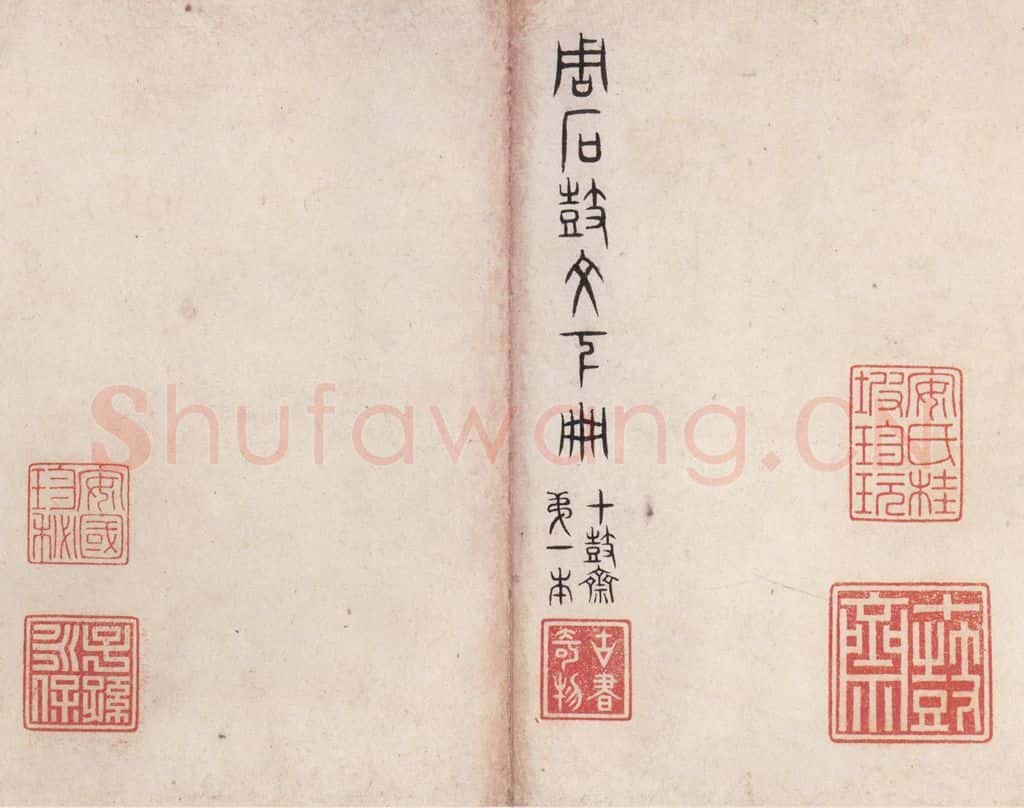 周石鼓文下冊
十鼓齋
弟一本
古書奇物
安氏桂坡珍玩
十鼓齋
安國珍秘
子孫永保
Shufawang.cn